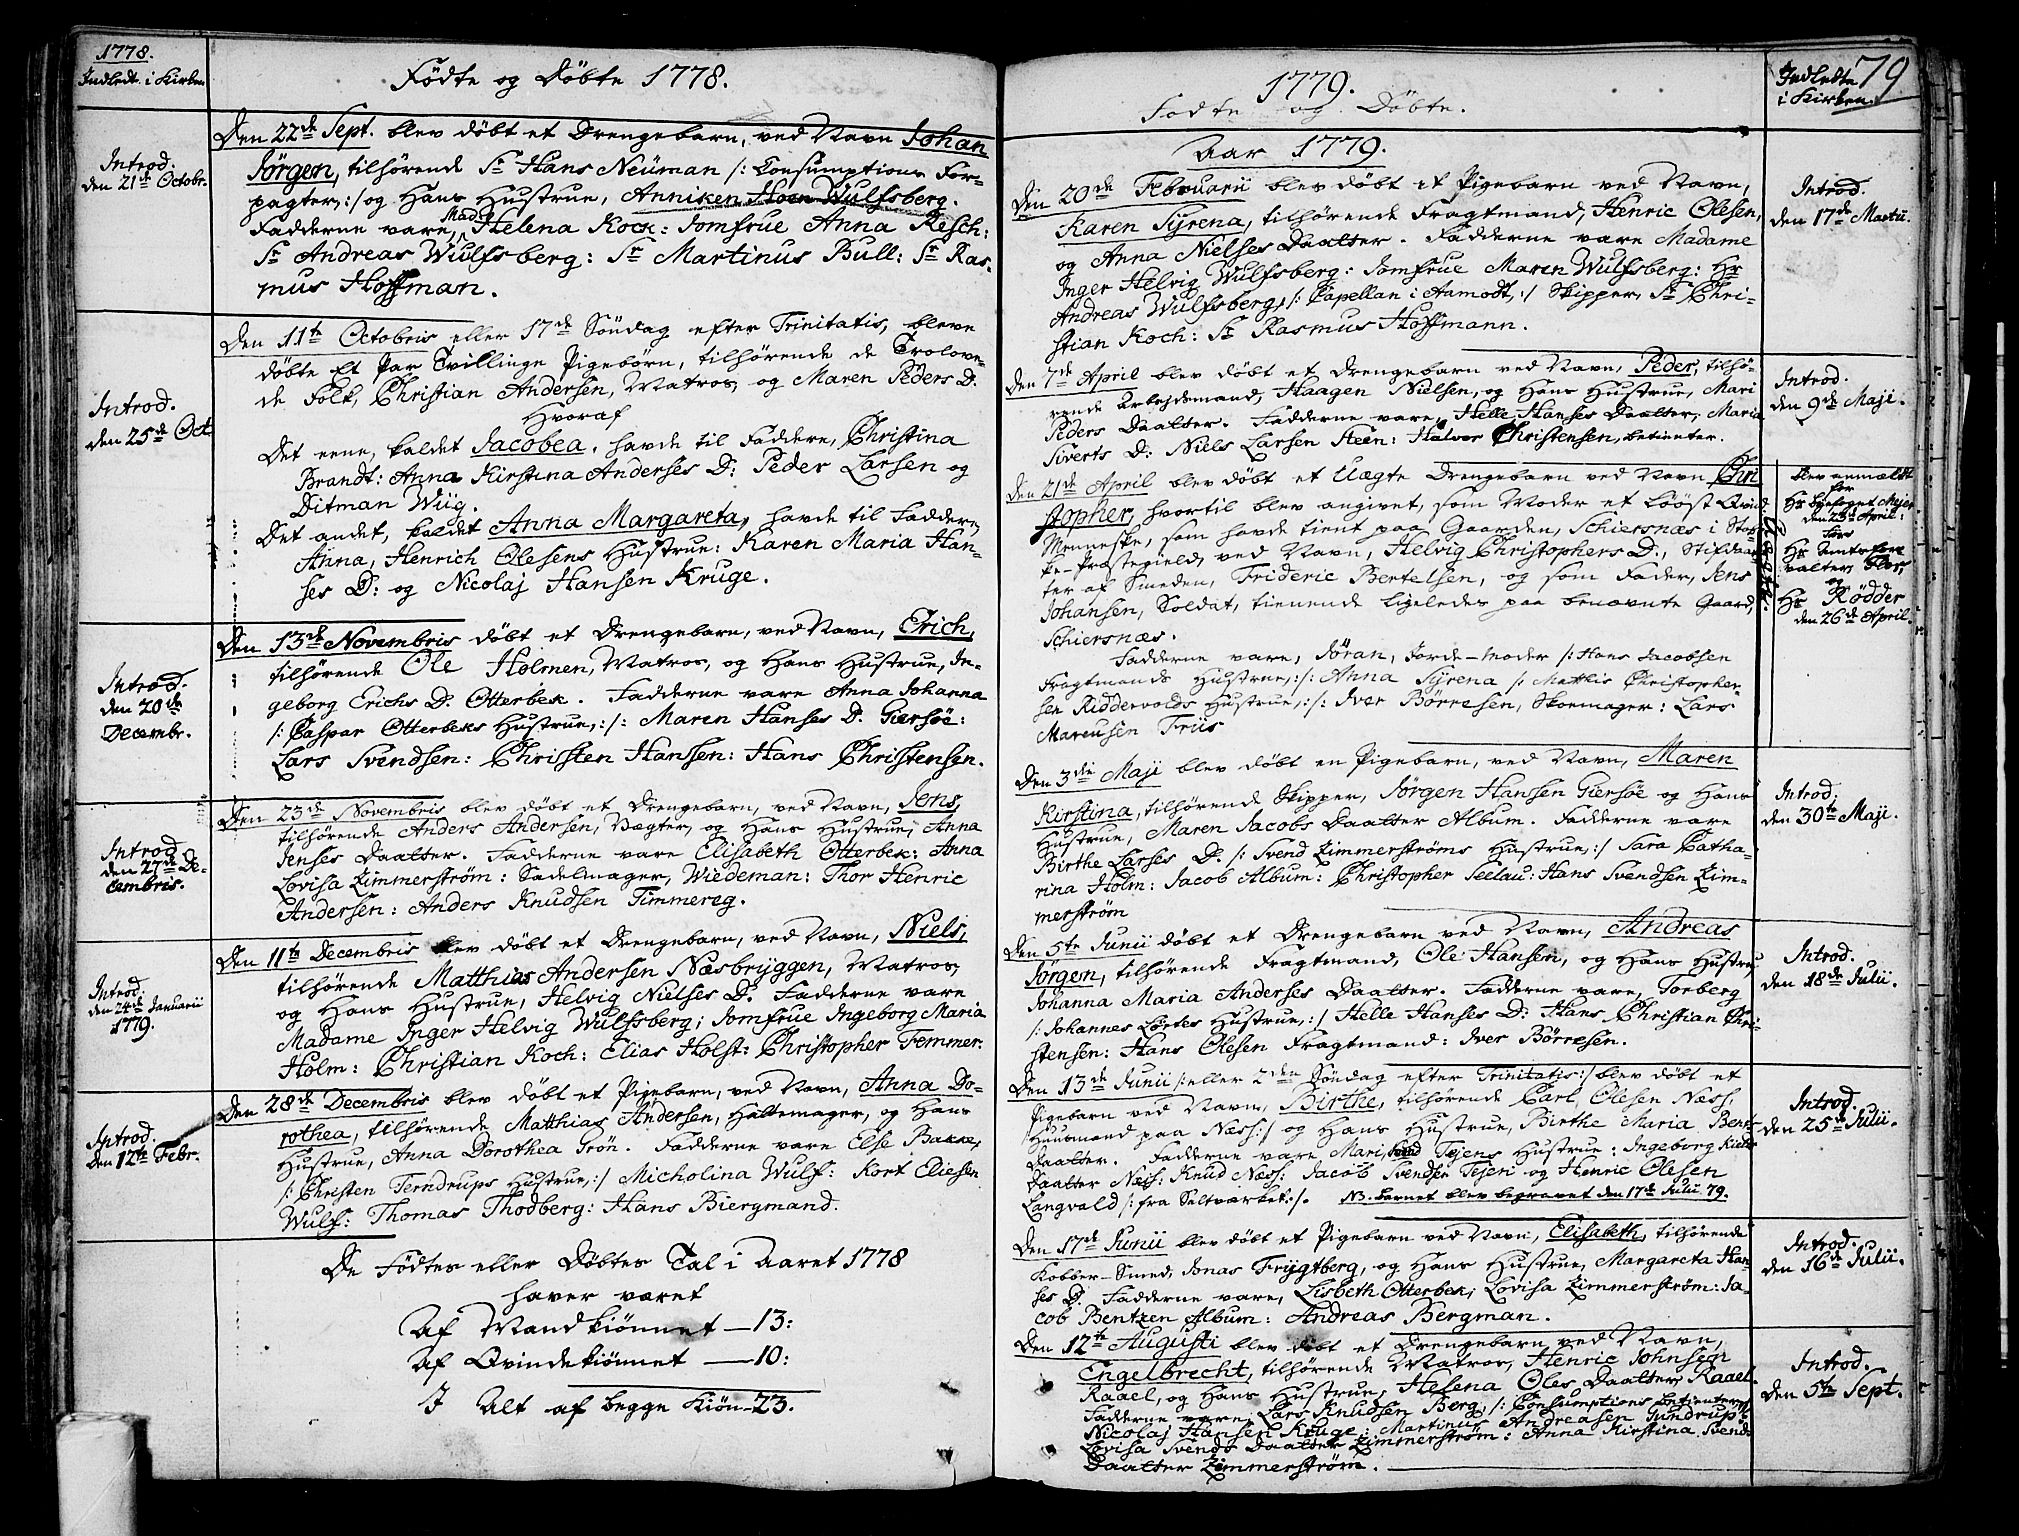 1778.
Indledt. i Kirken
Födte og Döbte 1778.
Introd.
den 21de Octobr.
Den 22de Sept. blev döbt et Drengebarn, ved Navn Johan
Jörgen, tilhörende Sr Hans Neüman /: Consumptions For-
pagter,:/ og Hans Hustrue, Anniken Hoen Wulfsberg.
Fadderne vare, Mad. Helena Kock: Jomfrue Anna Resch:
Sr Andreas Wulfsberg: Sr Martinus Bull: Sr Ras-
mus Hoffman.
Introd.
den 25de Oct
Den 11te Octobris eller 17de Söndag efter Trinitatis, bleve
döbte Et Par Tvillinge Pigebörn, tilhörende de Trolove-
de Folk, Christian Andersen, Matros, og Maren Peders D.
Hvoraf
Det eene, kaldet Jacobea, havde til Faddere, Christina
Brandt: Anna Kirstina Anderses D: Peder Larsen og
Ditman Wiig.
Det andet, kaldet Anna Margareta, havde til Faddere,
Anna, Henrich Olesens Hustrue: Karen Maria Han-
ses D: og Nicolaj Hansen Kruge.
Introd.
den 20de
Decembr.
Den 13de Novembris döbt et Drengebarn, ved Navn, Erich,
tilhörende Ole Holmen, Matros, og Hans Hustrue, In-
geborg Erichs D. Otterbek. Fadderne vare Anna Johanna
/: Caspar Otterbeks Hustrue,:/: Maren Hanses D. Giersöe:
Lars Svendsen: Christen Hansen: Hans Christensen.
Introd.
den 27de De-
cembris.
Den 23de Novembris blev döbt et Drengebarn, ved Navn, Jens,
tilhörende Anders Andersen, Vægter, og Hans Hustrue, Anna
Jenses Daatter. Fadderne vare Elisabeth Otterbek: Anna
Lovisa Zimmerström: Sadelmager, Wiedeman: Thor Henric
Andersen: Anders Knudsen Timmereg.
Introd.
den 24de Januarii
1779.
Den 11te Decembris blev döbt et Drengebarn, ved Navn, Niels,
tilhörende Matthias Andersen Næsbryggen, Matros,
og Hans Hustrue, Helvig Nielses D. Fadderne vare
Madame Inger Helvig Wulfsberg; Jomfrue Ingeborg Maria
Holm: Christian Koch: Elias Holst: Christopher Femmer.
Introd.
den 12te Febr.
Den 28de Decembris blev döbt et Pigebarn, ved Navn, Anna Do-
rothea, tilhörende Matthias Andersen, Hattemager, og Hans
Hustrue, Anna Dorothea Grön. Fadderne vare Else Bakke,
/: Christen Terndrups Hustrue,:/ Micholina Wulf: Kort Eliesen
Wulf: Thomas Thodberg: Hans Biergmand.
De Födtes eller Döbtes Tal i Aaret 1778
haver været
Af Mandkiönnet — 13:
Af Qvindekiönnet — 10:
I Alt af begge Kiön — 23.
79
Indledte
i Kirken.
1779.
Fodte og Döbte.
Aar 1779.
Introd.
den 17de Martii.
Den 20de Februarii blev döbt et Pigebarn ved Navn,
Karen Syrena, tilhörende Fragtmand, Henric Olesen,
og Anna Nielses Daatter. Fadderne vare Madame
Inger Helvig Wulfsberg: Jomfrue Maren Wulfsberg: Hr
Andreas Wulfsberg, /: Capellan i Aamodt,:/ Skipper, Sr Chri-
stian Koch: Sr Rasmus Hoffmann.
Introd.
den 9de Maji.
Den 7de April blev döbt et Drengebarn ved Navn, Peder, tilhö-
rende Arbejdsmand, Haagen Nielsen, og Hans Hustrue, Mari
Peders Daatter. Fadderne vare, Helle Hanses Daatter, Maria
Siverts D: Niels Larsen Steen: Halvor Christensen, betienter.
Blev anmældt
for
den 23de April:
for
valter,
og
Hr Rödder
den 26de April.
Uægte.
Den 21de April blev döbt et Uægte Drengebarn ved Navn Chri
stopher, hvortil blev angivet, som Moder et Lööst Qvind-
Menneske, som havde tient paa Gaarden, Schiersnæs i Stok-
ke-Præstegield, ved Navn, Helvig Christophers D., Stifdaat-
ter af Smeden, Frideric Bertelsen, og som Fader, Jens
Johansen, Soldat, tienende ligeledes paa benævnte Gaard,
Schiersnæs.
Fadderne vare, Söran, Jorde-Moder /: Hans Jacobsen
Fragtmands Hustrue,:/: Anna Syrena /: Matthis Christopher-
sen Riddervolds Hustrue,:/: Iver Börresen, Skomager: Lars
Marcusen Friis
Introd.
den 30te Maji.
Den 3die Maji blev döbt en Pigebarn, ved Navn, Maren
Kirstina, tilhörende Skipper, Jörgen Hansen Giersöe og Hans
Hustrue, Maren Jacobs Daatter Album. Fadderne vare
Birthe Larses D. /: Svend Zimmerströms Hustrue,:/ Sara Catha-
rina Holm: Jacob Album: Christopher Seelau: Hans Svendsen Zim-
merström
Introd.
den 18de Julii.
Den 5te Junii döbt et Drengebarn ved Navn, Andreas
Jörgen, tilhörende Fragtmand, Ole Hansen, og Hans Hustru
Johanna Maria Anderses Daatter. Fadderne vare, Torberg
/: Johannes Lortes Hustrue,:/ Helle Hanses D: Hans Christian Chri-
stensen: Hans Olesen Fragtmand: Iver Börresen.
Introd.
den 25de Julii.
Den 13de Junii /: eller 2den Söndag efter Trinitatis:/ blev döbt et
Pigebarn ved Navn, Birthe, tilhörende Carl Olesen Næss,
Huusmand paa Næss:/ og Hans Hustrue, Birthe Maria Bents
Daatter. Fadderne vare, Mari, Svend Tejens Hustrue: Ingeborg
Daatter Næss: Knud Næss: Jacob Svendsen Tejen og Henric Olesen
Langvald /: fra Saltværket:/. NB. Barnet blev begravet den 17de Julii 79.
Introd.
den 16de Julii.
Den 17de Junii blev döbt et Pigebarn ved Navn, Elisabeth, tilhörende
Kobber-Smed, Jonas Frygtberg, og Hans Hustrue, Margareta Han-
ses D. Fadderne vare, Lisbeth Otterbek, Lovisa Zimmerström: Ja-
cob Bentzen Album: Andreas Bergman.
Introd.
den 5te Sept.
Den 12te Augusti blev döbt et Drengebarn ved Navn,
Engelbrecht, tilhörende Matros, Henric Johnsen
Raael, og Hans Hustrue, Helena Oles Daatter Raael.
Fadderne vare, Lars Knudsen Berg, /: Consumptions betienter:/
Nicolaj Hansen Kruge: Martinus Andreasen Gundrup:
Lovisa Svends Daatter Zimmerström: Anna Kirstina Svends
Daatter Zimmerström.